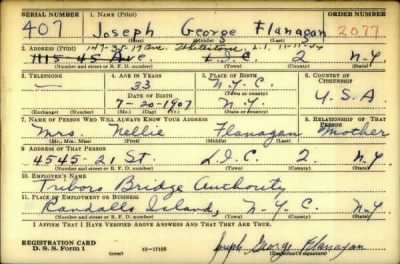 SERIAL NUMBER 1. NAME (Print) ORDER NUMBER
407 Joseph George Flanagan 2077
(First) (Middle) (Last)
2. ADDRESS (Print) 147-38-19 ave. Whitestone L.I. 11-11-44
1115-45 Ave L.I.C. 2 N.Y.
(Number and street or R. F. D. number) (Town) (County) (State)
3. TELEPHONE 4. AGE IN YEARS 5. PLACE OF BIRTH 6. COUNTRY OF CITIZENSHIP
— 33 N.Y.C.
DATE OF BIRTH (Town or county)
7-20-1907 N.Y. U.S.A
(Exchange) (Number) (Mo.) (Day) (Yr.) (State or country)
7. NAME OF PERSON WHO WILL ALWAYS KNOW YOUR ADDRESS 8. RELATIONSHIP OF THAT PERSON
Mrs. Nellie Flanagan Mother
(Mr., Mrs., Miss) (First) (Middle) (Last)
9. ADDRESS OF THAT PERSON
4545-21 St. L.I.C. 2 N.Y
(Number and street or R. F. D. number) (Town) (County) (State)
10. EMPLOYER'S NAME
Triboro Bridge Authority
11. PLACE OF EMPLOYMENT OR BUSINESS
Randalls Island, N.Y.C. N.Y
(Number and street or R. F. D. number) (Town) (County) (State)
I AFFIRM THAT I HAVE VERIFIED ABOVE ANSWERS AND THAT THEY ARE TRUE.
REGISTRATION CARD
D. S. S. Form 1 16—17105 Joseph George Flanagan
(Registrant's signature)